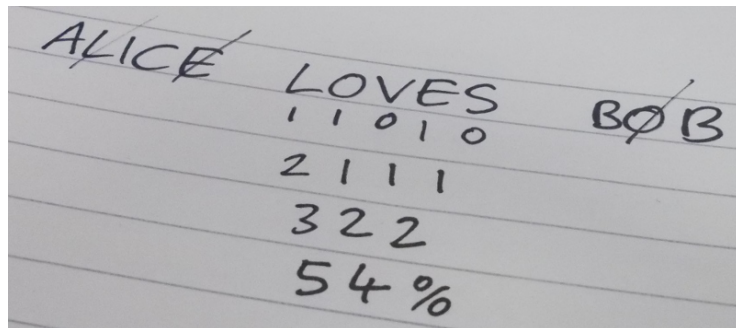 ALICE LOVES BOB
1 1 0 1 0
2 1 1 1
3 2 2
54%